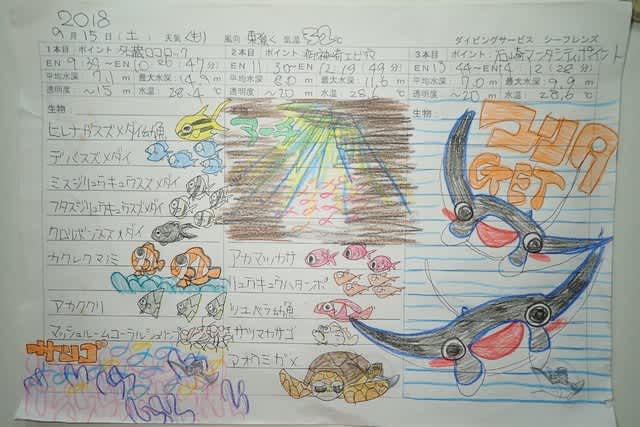 2018
9月15日(土) 天気 風向 東 気温 32℃
ダイビングサービス シーフレンズ
1本目 ポイント:
EN 9:39~
平均水深: 7.1m 最大水深: 14.9m
透明度: ~15m 水温: 28.4℃
生物:
ヒレナガスズメダイ幼魚
デバスズメダイ
ミスジリュウキュウスズメダイ
フタスジリュウキュウスズメダイ
クロリボンスズメダイ
カクレクマノミ
アカククリ
マッシュルームコーラルシュリンプ
サンゴ
2本目 ポイント:
EN 11:30~12:19(49分)
平均水深: 8.0m 最大水深:
透明度: ~20m 水温: 28.6℃
アカマツカサ
リュウキュウハタンポ
ツユベラ幼魚
サツマカサゴ
アオウミガメ
3本目 ポイント: 石崎マンタシティポイント
EN 13:44~14:12(28分)
平均水深: 7.0m 最大水深: 9.9m
透明度: ~20m 水温: 28.6℃
生物:
マンタ
GET